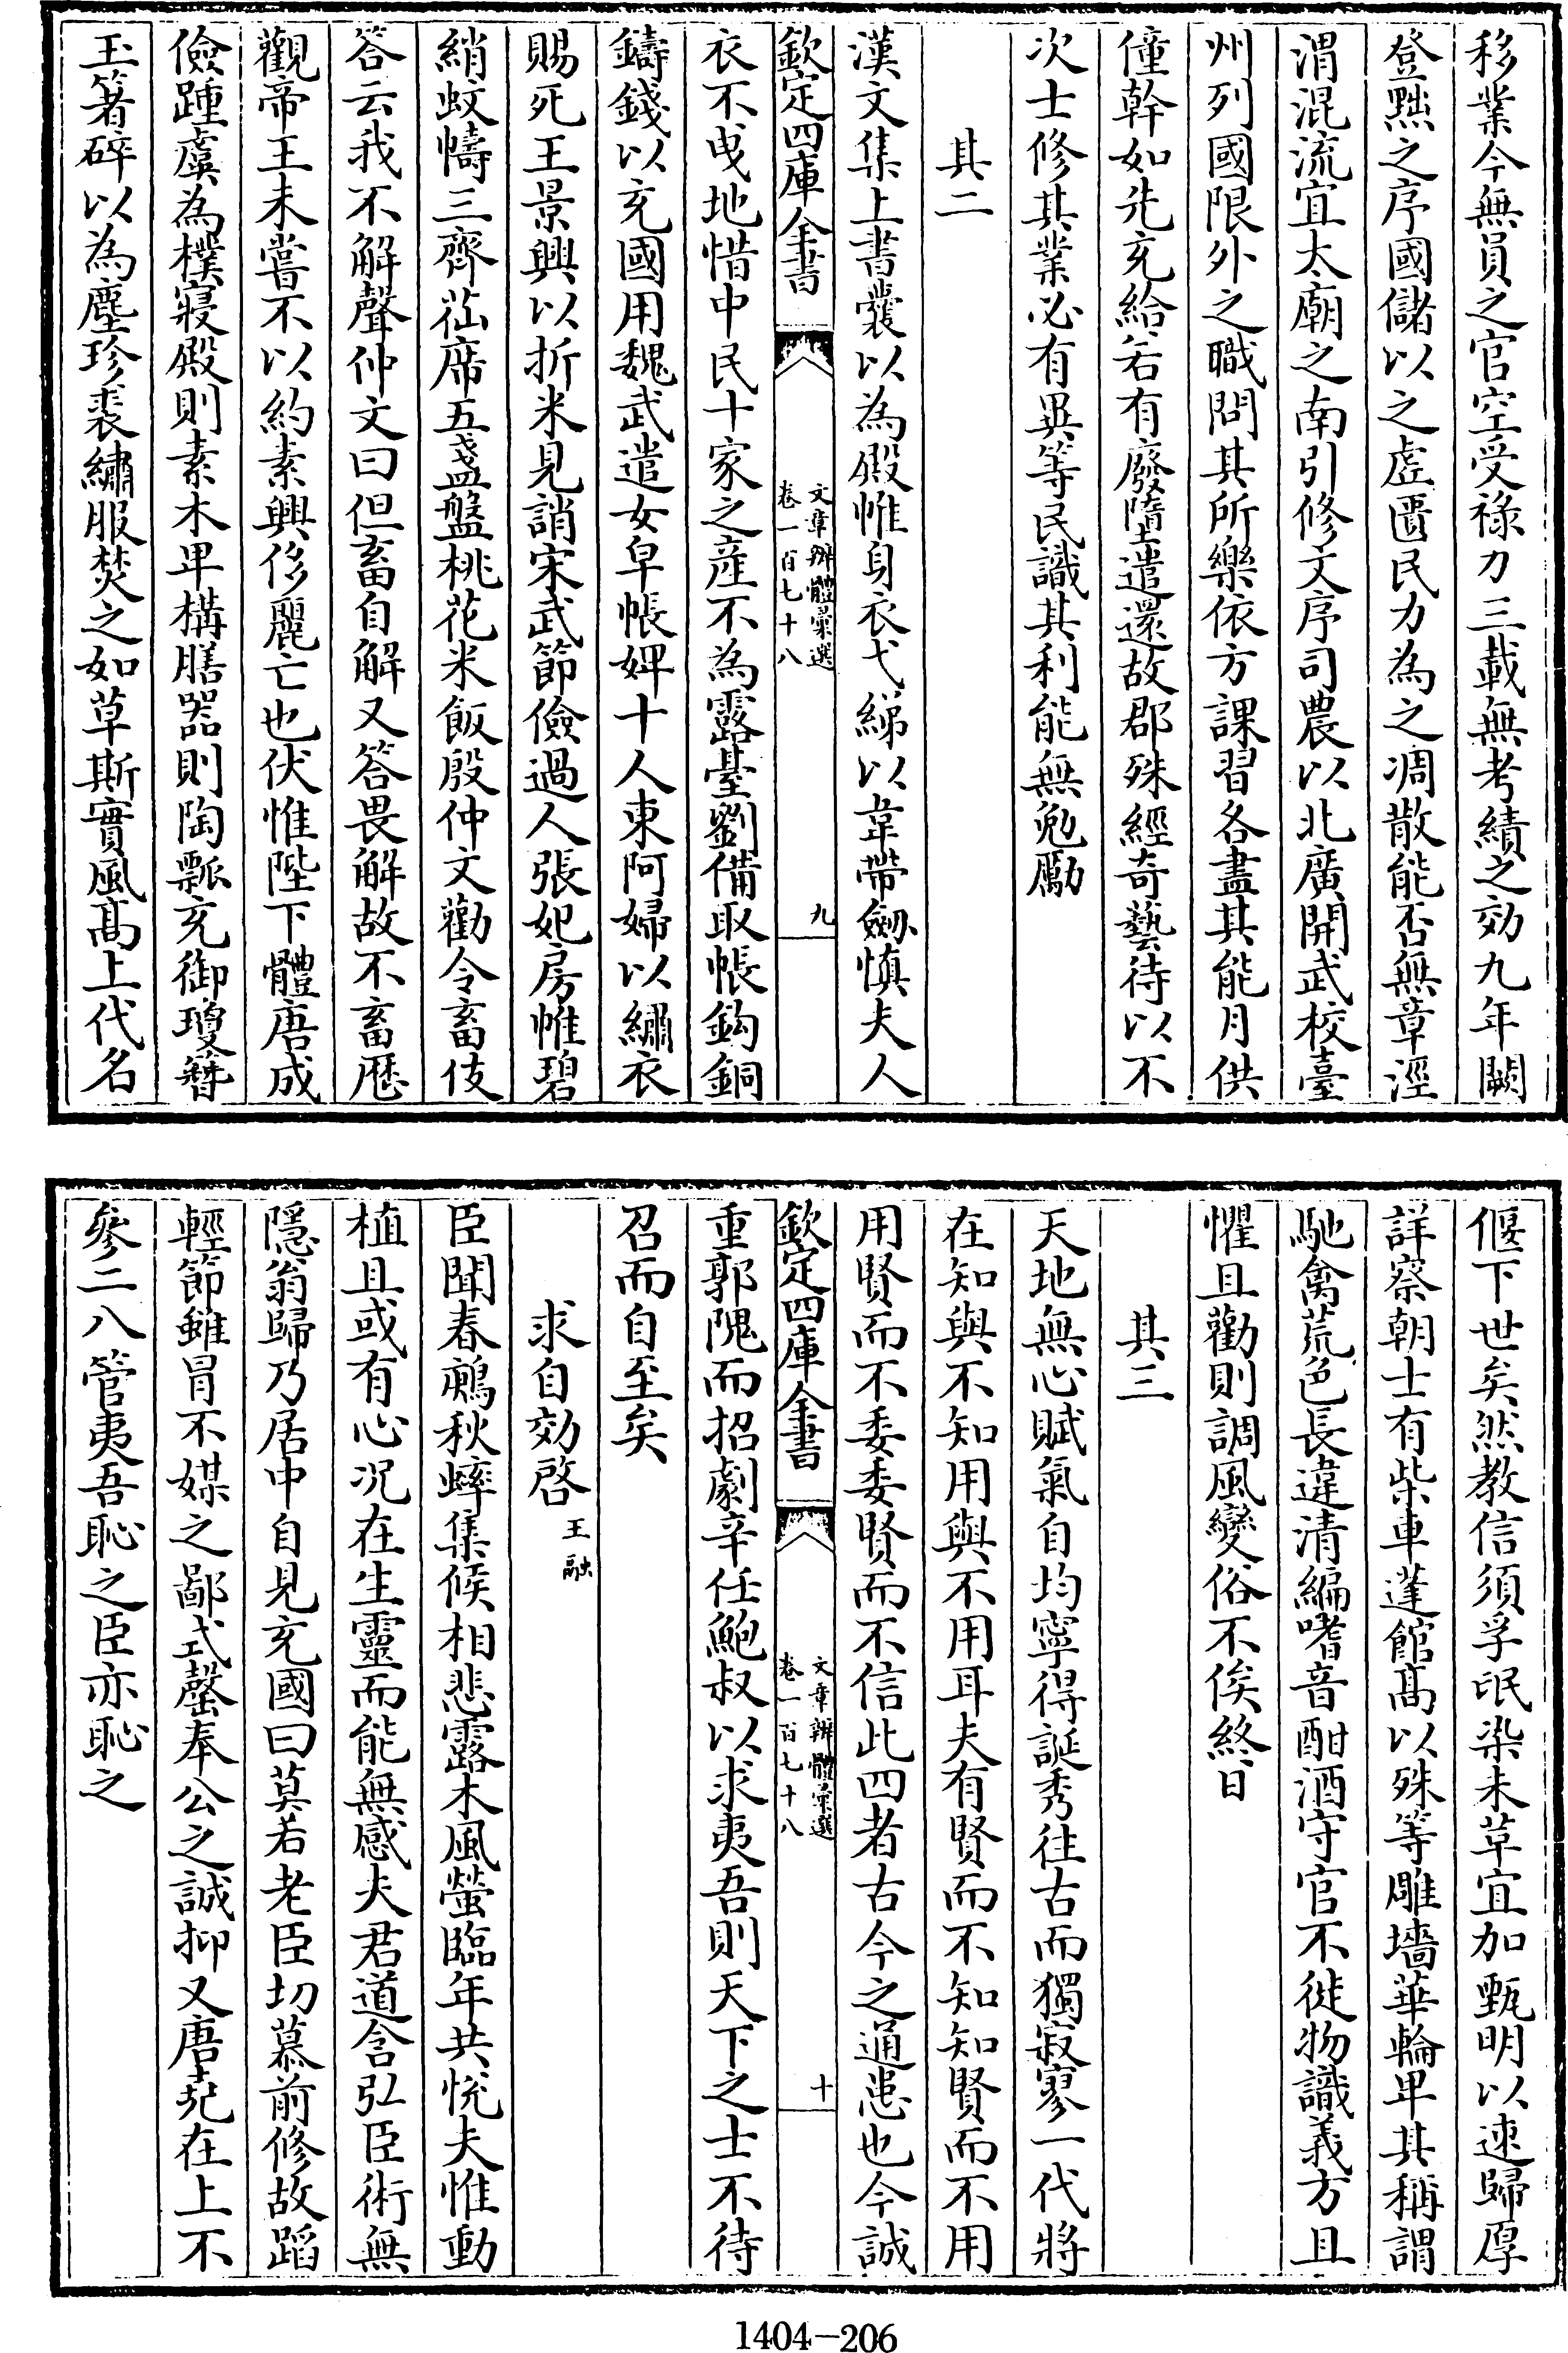 移業今無員之官空受祿力三載無考績之効九年闕
登黜之序國儲以之虛匱民力為之凋散能否無章涇
渭混流宜太廟之南引修文序司農以北廣開武校臺
州列國限外之職問其所樂依方課習各盡其能月供
僮幹如先充給若有廢墮遣還故郡殊經奇藝待以不
次士修其業必有異等民識其利能無勉勵
其二
漢文集上書囊以為殿帷身衣弋綈以韋帶劒慎夫人
欽定四庫全書
文章辨體彙選
卷一百七十八
九
衣不曵地惜中民十家之產不為露臺劉備取帳鈎銅
鑄錢以充國用魏武遣女皁帳婢十人東阿婦以繡衣
賜死王景興以折米見誚宋武節儉過人張妃房帷碧
綃蚊幬三齊苮席五盞盤桃花米飯殷仲文勸令畜伎
答云我不解聲仲文曰但畜自解又答畏解故不畜歴
觀帝王未嘗不以約素興侈麗亡也伏惟陛下體唐成
儉踵虞為樸寢殿則素木卑構膳器則陶瓢充御瓊簪
玉箸碎以為塵珍裘繡服焚之如草斯實風髙上代名
偃下世矣然教信須孚氓染未草宜加甄明以速歸厚
詳察朝士有柴車蓬館髙以殊等雕墻華輪卑其稱謂
馳禽荒色長違清編嗜音酣酒守官不徙物識義方且
懼且勸則調風變俗不俟終日
其三
天地無心賦氣自均寧得誕秀往古而獨寂寥一代將
在知與不知用與不用耳夫有賢而不知知賢而不用
用賢而不委委賢而不信此四者古今之通患也今誠
欽定四庫全書
文章辨體彙選
卷一百七十八
十
重郭隗而招劇辛任鮑叔以求夷吾則天下之士不待
召而自至矣
求自効啓 王融
臣聞春鶊秋蟀集候相悲露木風螢臨年共悅夫惟動
植且或有心况在生靈而能無感夫君道含弘臣術無
隱翁歸乃居中自見充國曰莫若老臣切慕前修故蹈
輕節雖冒不媒之鄙式罄奉公之誠抑又唐堯在上不
參二八管夷吾恥之臣亦恥之
1404-206